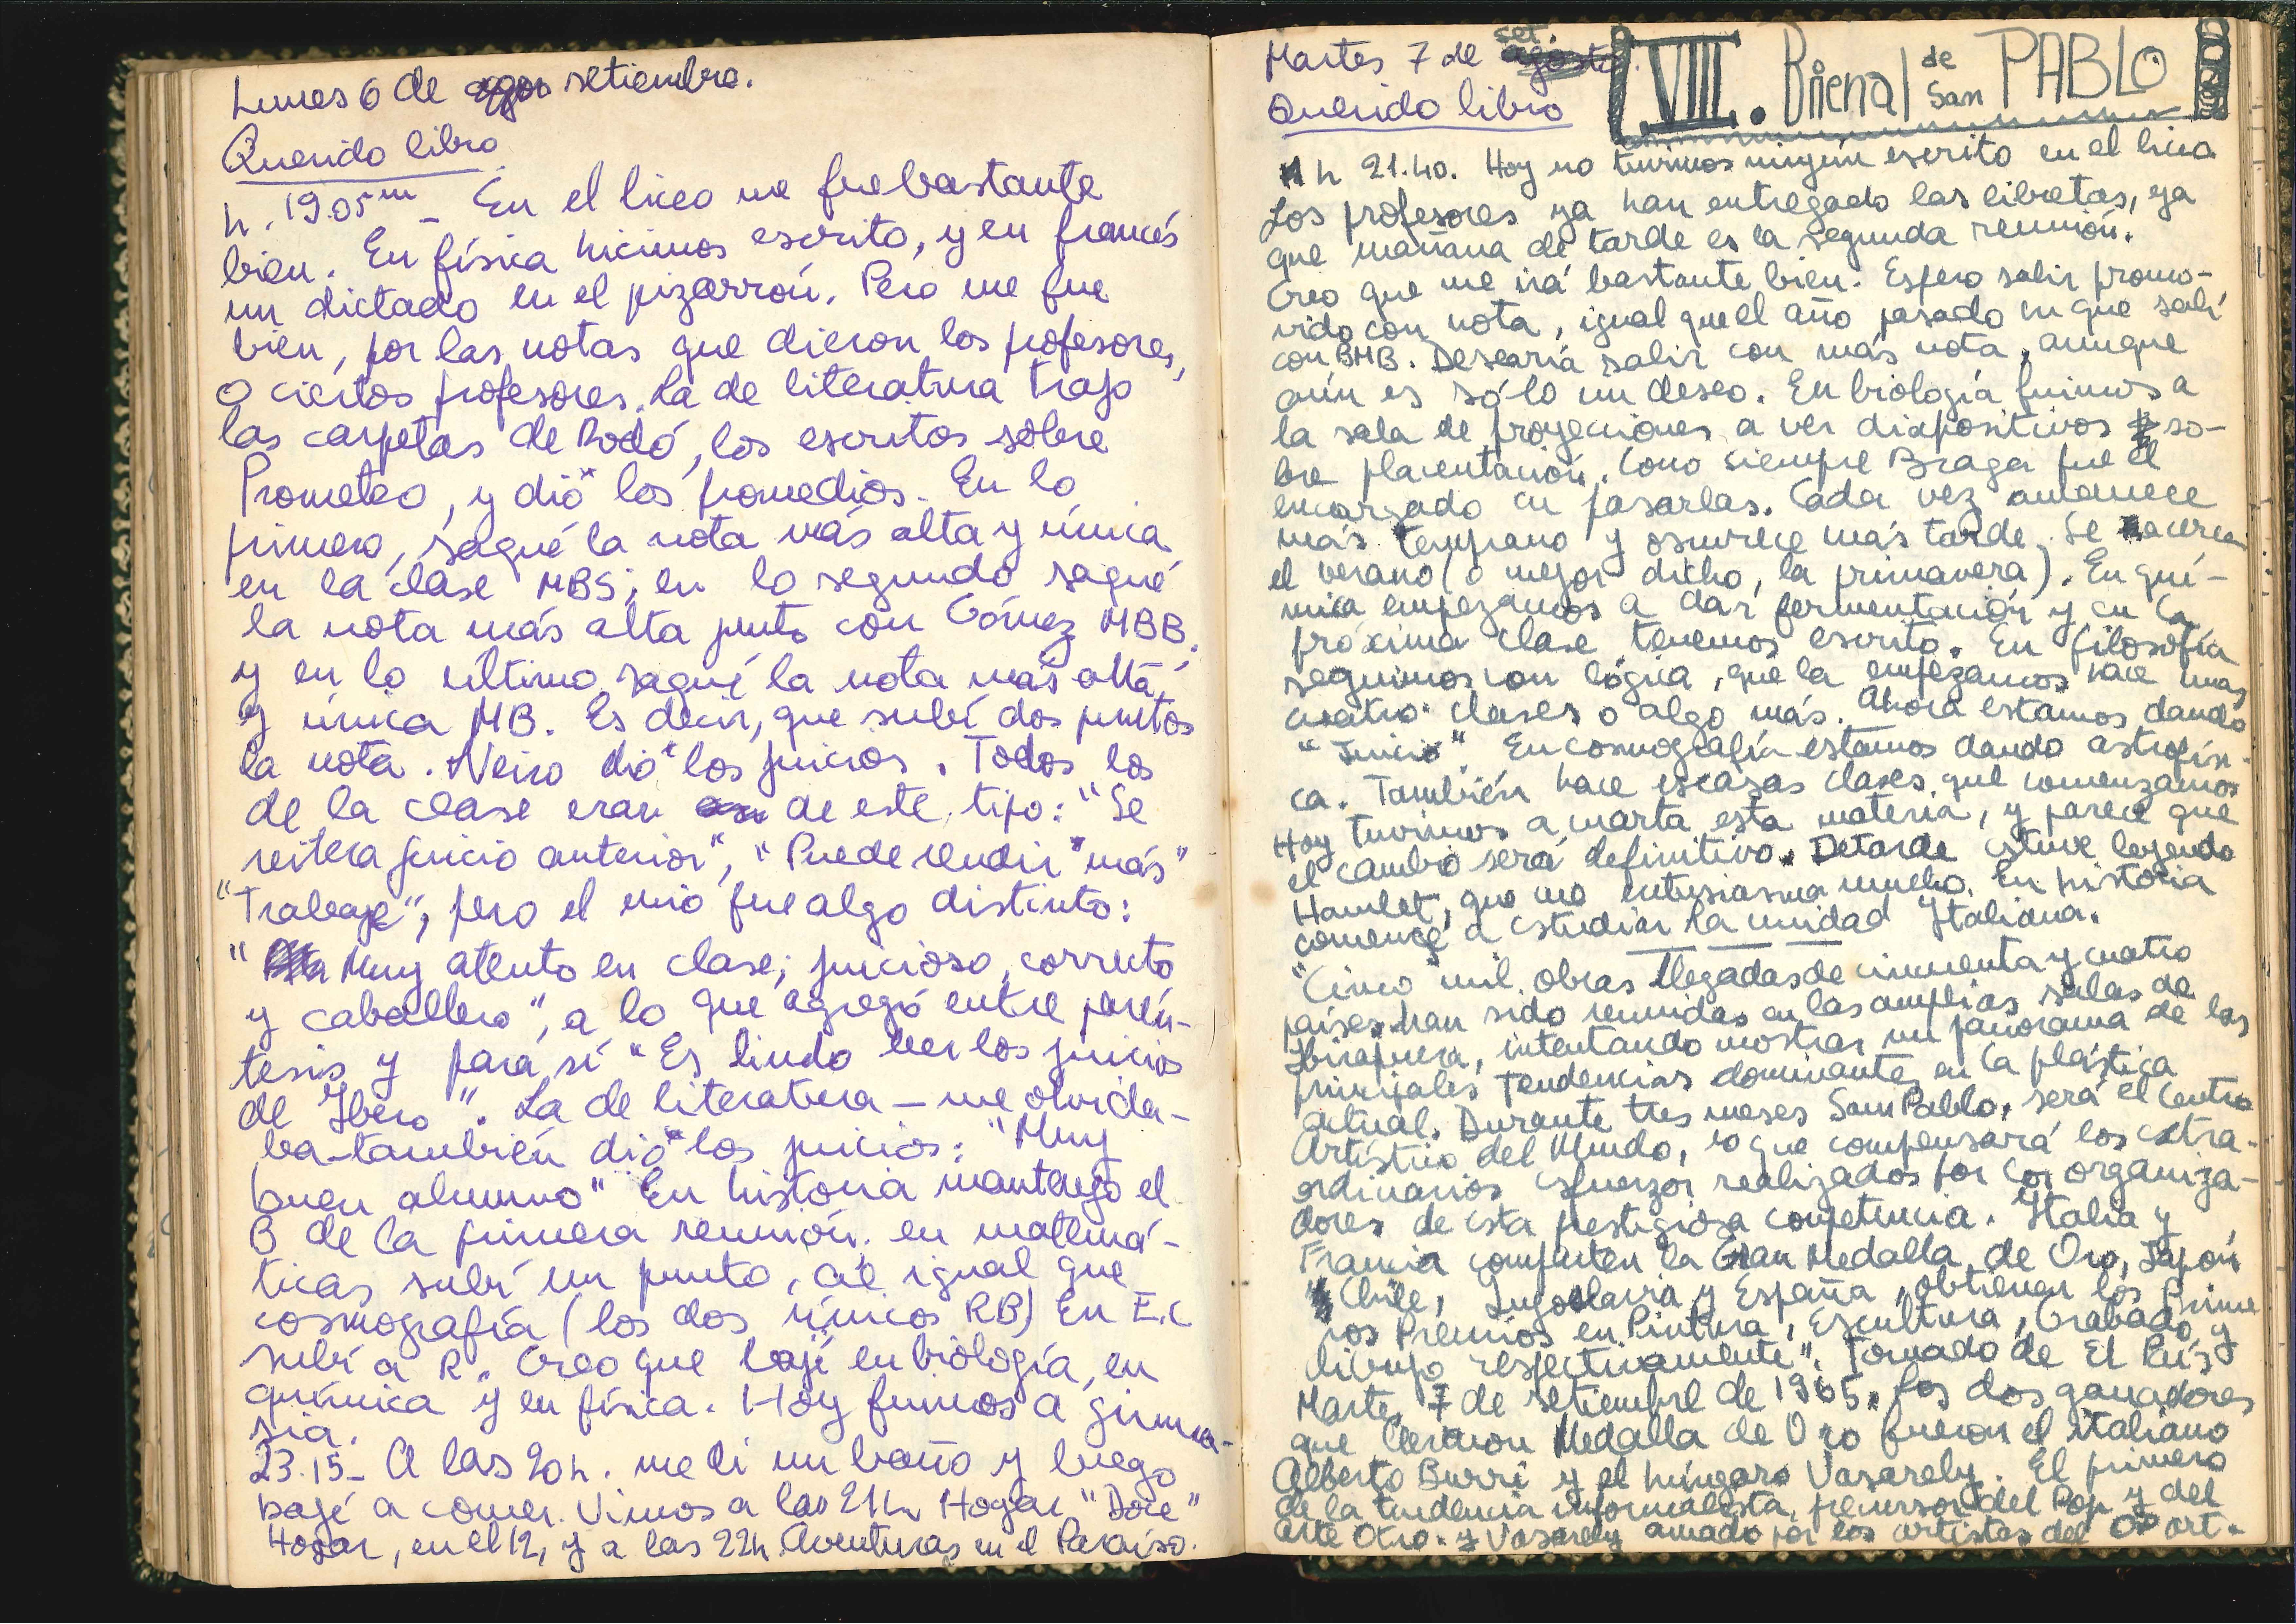 Lunes 6 de setiembre.
Querido libro
h. 19.05m - En el liceo me fue bastante
bien. En física hicimos escrito, y en francés
un dictado en el pizarrón. Pero me fue
bien, por las notas que dieron los profesores,
o ciertos profesores. La de literatura trajo
las carpetas de Rodó, los escritos sobre
Prometeo, y dió los promedios. En lo
primero, saqué la nota más alta y única
en la clase MBS; en lo segundo saqué
la nota más alta junto con Gómez MBB,
y en lo último saqué la nota más alta,
y única MB. Es decir, que subí dos puntos
la nota. Neiro dió los juicios. Todos los
de la clase eran de este tipo: "Se
reitera juicio anterior", "Puede rendir más"
"Trabaje", pero el mío fue algo distinto:
"Muy atento en clase; juicioso, correcto
y caballero", a lo que agregó entre parén-
tesis y para sí "Es lindo leer los juicios
de Ybero". La de literatura - me olvida-
ba - también dió los juicios: "Muy
buen alumno" En historia mantengo el
B de la primera reunión. en matemá-
ticas subí un punto, al igual que
cosmografía (los dos únicos RB) En E.C
subí a R. Creo que bajé en biología, en
química y en física. Hoy fuimos a gimna-
sia.
23.15 - A las 20h. me di un baño y luego
bajé a comer. Vimos a las 21h Hogar "Dulce"
Hogar, en el 12, y a las 22h Aventuras en el Paraíso.
Martes 7 de set. agosto.
VIII. Bienal de San PABLO
Querido libro
h 21.40. Hoy no tuvimos ningún escrito en el liceo
Los profesores ya han entregado las libretas, ya
que mañana de tarde es la segunda reunión.
Creo que me irá bastante bien. Espero salir promo-
vido con nota, igual que el año pasado en que salí
con BMB. Desearía salir con más nota, aunque
aún es sólo un deseo. En biología fuimos a
la sala de proyecciones a ver diapositivos so-
bre placentación. Como siempre Braga fue el
encargado en pasarlas. Cada vez amanece
más temprano y oscurece más tarde. Se acerca
el verano (o mejor dicho, la primavera). En quí-
mica empezamos a dar fermentación y en la
próxima clase tenemos escrito. En filosofía
seguimos con lógica, que la empezamos hace unas
cuatro clases o algo más. Ahora estamos dando
"Juicio". En cosmografía estamos dando astrofísi-
ca. También hace escasas clases que comenzamos
Hoy tuvimos a cuarta esta materia, y parece que
el cambio será definitivo. De tarde estuve leyendo
Hamlet, que me entusiasma mucho. En historia
comencé a estudiar la unidad Italiana.
"Cinco mil obras llegadas de cincuenta y cuatro
países han sido reunidas en las amplias salas de
Ibirapuera, intentando mostrar un panorama de las
principales tendencias dominantes en la plástica
actual. Durante tres meses San Pablo, será el Centro
Artístico del Mundo, lo que compensará los extra-
ordinarios esfuerzos realizados por los organiza-
dores de esta prestigiosa competencia. Italia y
Francia comparten la Gran Medalla de Oro, Japón
Chile, Yugoslavia y España, obtienen los Prime
ros Premios en Pintura, Escultura, Grabado y
Dibujo respectivamente". Tomado de El País
Martes 7 de setiembre de 1965. Los dos ganadores
que Medalla de Oro fueron el italiano
Alberto Burri y el húngaro Vasarely. El primero
de la tendencia informalista, precursor del Pop y del
Arte Otro. y Vasarely amado por los artistas del Op art.